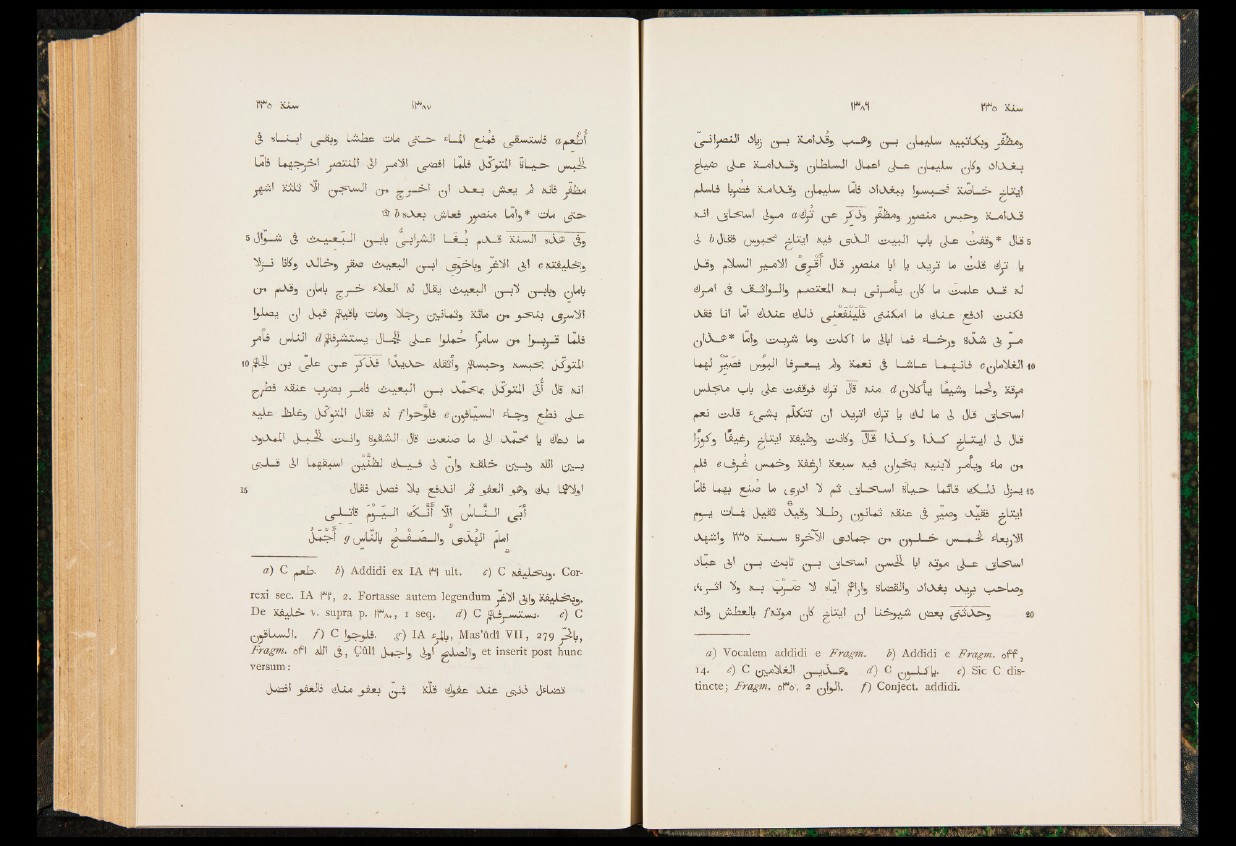 سنة ٢٣٥ ١٣٨٦
ومظفّر وكاتبيه سليمان بن وهب وقُدامة بن زياد النصرانىّ
ببغداد وكان سليمان على اعمال السلطان وقدامة على ضياع
ايتاخ خاصّة فحبسوا ببغداد فامّا سليمان وقدامة فضُربا فاسلم
قدامة وحبس منصور ومظفّر وذُكر عن تُرك a مولى اسحاق انه
5 قال * وقفتُ على باب البيت الذى فيه ايتاخ محبوس فقال b لى
يا ترك قلت ما تريد يا ابا منصور قال أَقْرِئ الامير السلام وقل
له قد علمت ما كان يأمرنى به المعتصم والواثق فى امرك
فكنت ادفع عنك ما امكننى فَلْيَنْفَعْنى ذلك عندك اما انا فقد
مرّ بى شدّة ورخاء فما ابالى ما اكلت وما شربت وامّا * هذان
10 الغلامان c فانهما عاشا فى نعمة ولم يعرفا البوس فصَيِّر لهما
مرقة ولحمًا وشيئا يأكلان d منه قال ترك فوقفت على باب مجلس
اسحاق قال لى ما لك يا ترك اتريد ان تتكلّم بشىء قلت نعم
قال لى ايتاخ كذا وكذا قال وكانت وظيفة ايتاخ رغيفًا وكوزًا
من ماء ويأمر لابنيه بخوان فيه سبعة ارغفة وخمس غُرَف e فلم
15 يزل ذلك قائما حياة اسحاق ثم لا ادرى ما صُنع بهما فامّا
ايتاخ فقيّد وصُيّر فى عنقه ثمانون رطلا وقيدٌ ثقيل فمات يوم
الاربعاء لخمس خلون من جمادى الآخرة سنة ٢٣٥ واشهد
اسحاق على موته ابا الحسن اسحاق بن ثابت بن ابى عبّاد
وصاحب بريد بغداد والقضاة واراهم ايّاه لا ضرب به ولا اثر
20 وحدّثنى بعض شيوخنا ان ايتاخ كان موته f بالعطش وانه
a) Vocalem addidi e Fragm. b) Addidi e Fragm. ٥۴۴,
14. c) C هذين الغلامين. d) C ياكلون. e) Sic C dis-
tincte; Fragm. ٥٣٥, 2 الوان. f) Conject. addidi.
سنة ٢٣٥ ١٣٨٧
أُطعم a فاستسقى فمُنع الماء حتى مات عطشا وبقى ابناه فى
الحبس حياة المتوكّل فلمّا افضى الامر الى المنتصر اخرجهما فامّا
مظفّر فانه لم يعش بعد ان اخرج من السجن الّا ثلثة اشهر
حتى مات * وامّا منصور فعاش بعده b ۞
5 وفى هذه السنة قدم بُغا الشرابىّ بابن البعيث فى شوّال
وبخليفته c ابى الاغرّ وباخوى ابن البعيث صقر وخالد وكانا نزلا
بامان وبابن لابن البعيث يقال له العلاء خرج بامان وقدم من
الاسرى بنحو من مائة وثمانين رجلا ومات باقيهم قبل ان يصلوا
فلمّا قربوا من سامرّا حُملوا على الجمال يستشرفهم d الناس فأمر
10 المتوكّل بحبسه وحبسهم واثقله حديدا فذكر عن علىّ بن الجهم
انه قال أُتى المتوكّل بمحمّد بن البعيث فامر بضرب عنقه فطرح
على نطع وجاء السيّافون e فلوّحوا f له فقال المتوكّل وغلظ عليه
ما دعاك يا محمّد الى ما صنعت قال الشقوة وانت الحبل الممدود
بين الله وبين خلقه وإنّ لى فيك لظنّين اسبقهما الى قلبى
15 اولاهما بك وهو العفو ثمّ اندفع بلا فصل فقال
أَبَى الـنَّـاسُ الّا أَنَّـكَ الـيَـوْمَ قاتـلـى
امامَ الهُدَى والـصَّـفْـحُ بالنّاسِ g أَجْمَلُ
a) C طعم. b) Addidi ex IA ٣٩ ult. c) C وبخليفه. Cor-
rexi sec. IA ٣٢, 2. Fortasse autem legendum وبخليفة وابى الاغرّ.
De خليفة v. supra p. ١٣٨٠, 1 seq. d) C يستسرفهم. e) C
السياقون. f) C فلوجوا. g) IA بالمرء, Mas'ûdî VII, 279 بالحرّ,
Fragm. ٥۴١ فى الله, Çûlî والصلح اولى واجمل et inserit post hunc
versum:
تضاءل ذنبى عند عفوك قلّة فمُنَّ بعفو منك فالعفو افضل